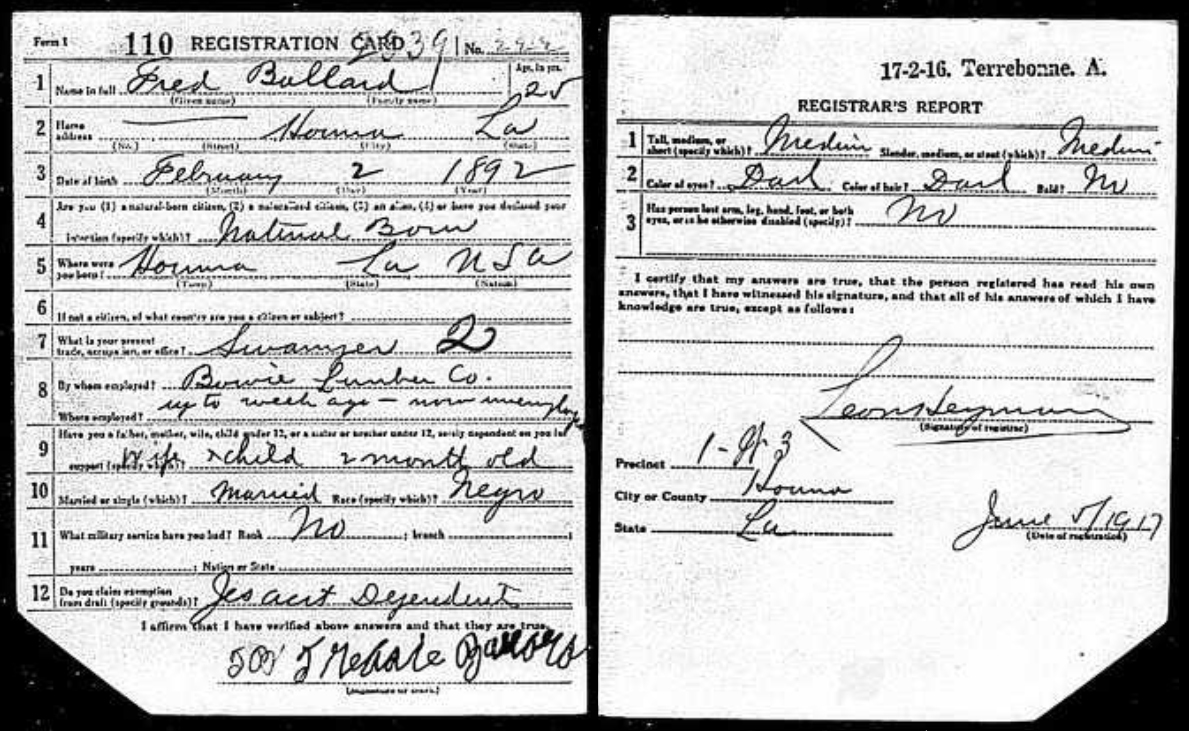 Form 1 110 REGISTRATION CARD 39 No.
1 Name in full Fred Bullard Age, in yrs. 25
(Given name) (Family name)
2 Home address Houma La
(No.) (Street) (City) (State)
3 Date of birth February 2 1892
(Month) (Day) (Year)
4 Are you (1) a natural-born citizen, (2) a naturalized citizen, (3) an alien, (4) or have you declared your
intention (specify which)? Natural Born
5 Where were you born? Houma La USA
(Town) (State) (Nation)
6 If not a citizen, of what country are you a citizen or subject?
7 What is your present trade, occupation, or office? Swamper 2
8 By whom employed? Bowie Lumber Co.
up to week ago – now unemploy
Where employed?
9 Have you a father, mother, wife, child under 12, or a sister or brother under 12, solely dependent on you for
support (specify which)? Wife & child 2 month old
10 Married or single (which)? Married Race (specify which)? Negro
11 What military service have you had? Rank No ; branch ;
years ; Nation or State
12 Do you claim exemption from draft (specify grounds)? Yes acct Dependent
I affirm that I have verified above answers and that they are true.
(Signature or mark)
17-2-16. Terrebonne. A.
REGISTRAR'S REPORT
1 Tall, medium, or short (specify which)? Medium Slender, medium, or stout (which)? Medium
2 Color of eyes? Dark Color of hair? Dark Bald? No
3 Has person lost arm, leg, hand, foot, or both eyes, or is he otherwise disabled (specify)? No
I certify that my answers are true, that the person registered has read his own
answers, that I have witnessed his signature, and that all of his answers of which I have
knowledge are true, except as follows:
Leon Heymann
(Signature of registrar)
Precinct 1- 3
City or County Houma
State La
June 5/1917
(Date of registration)